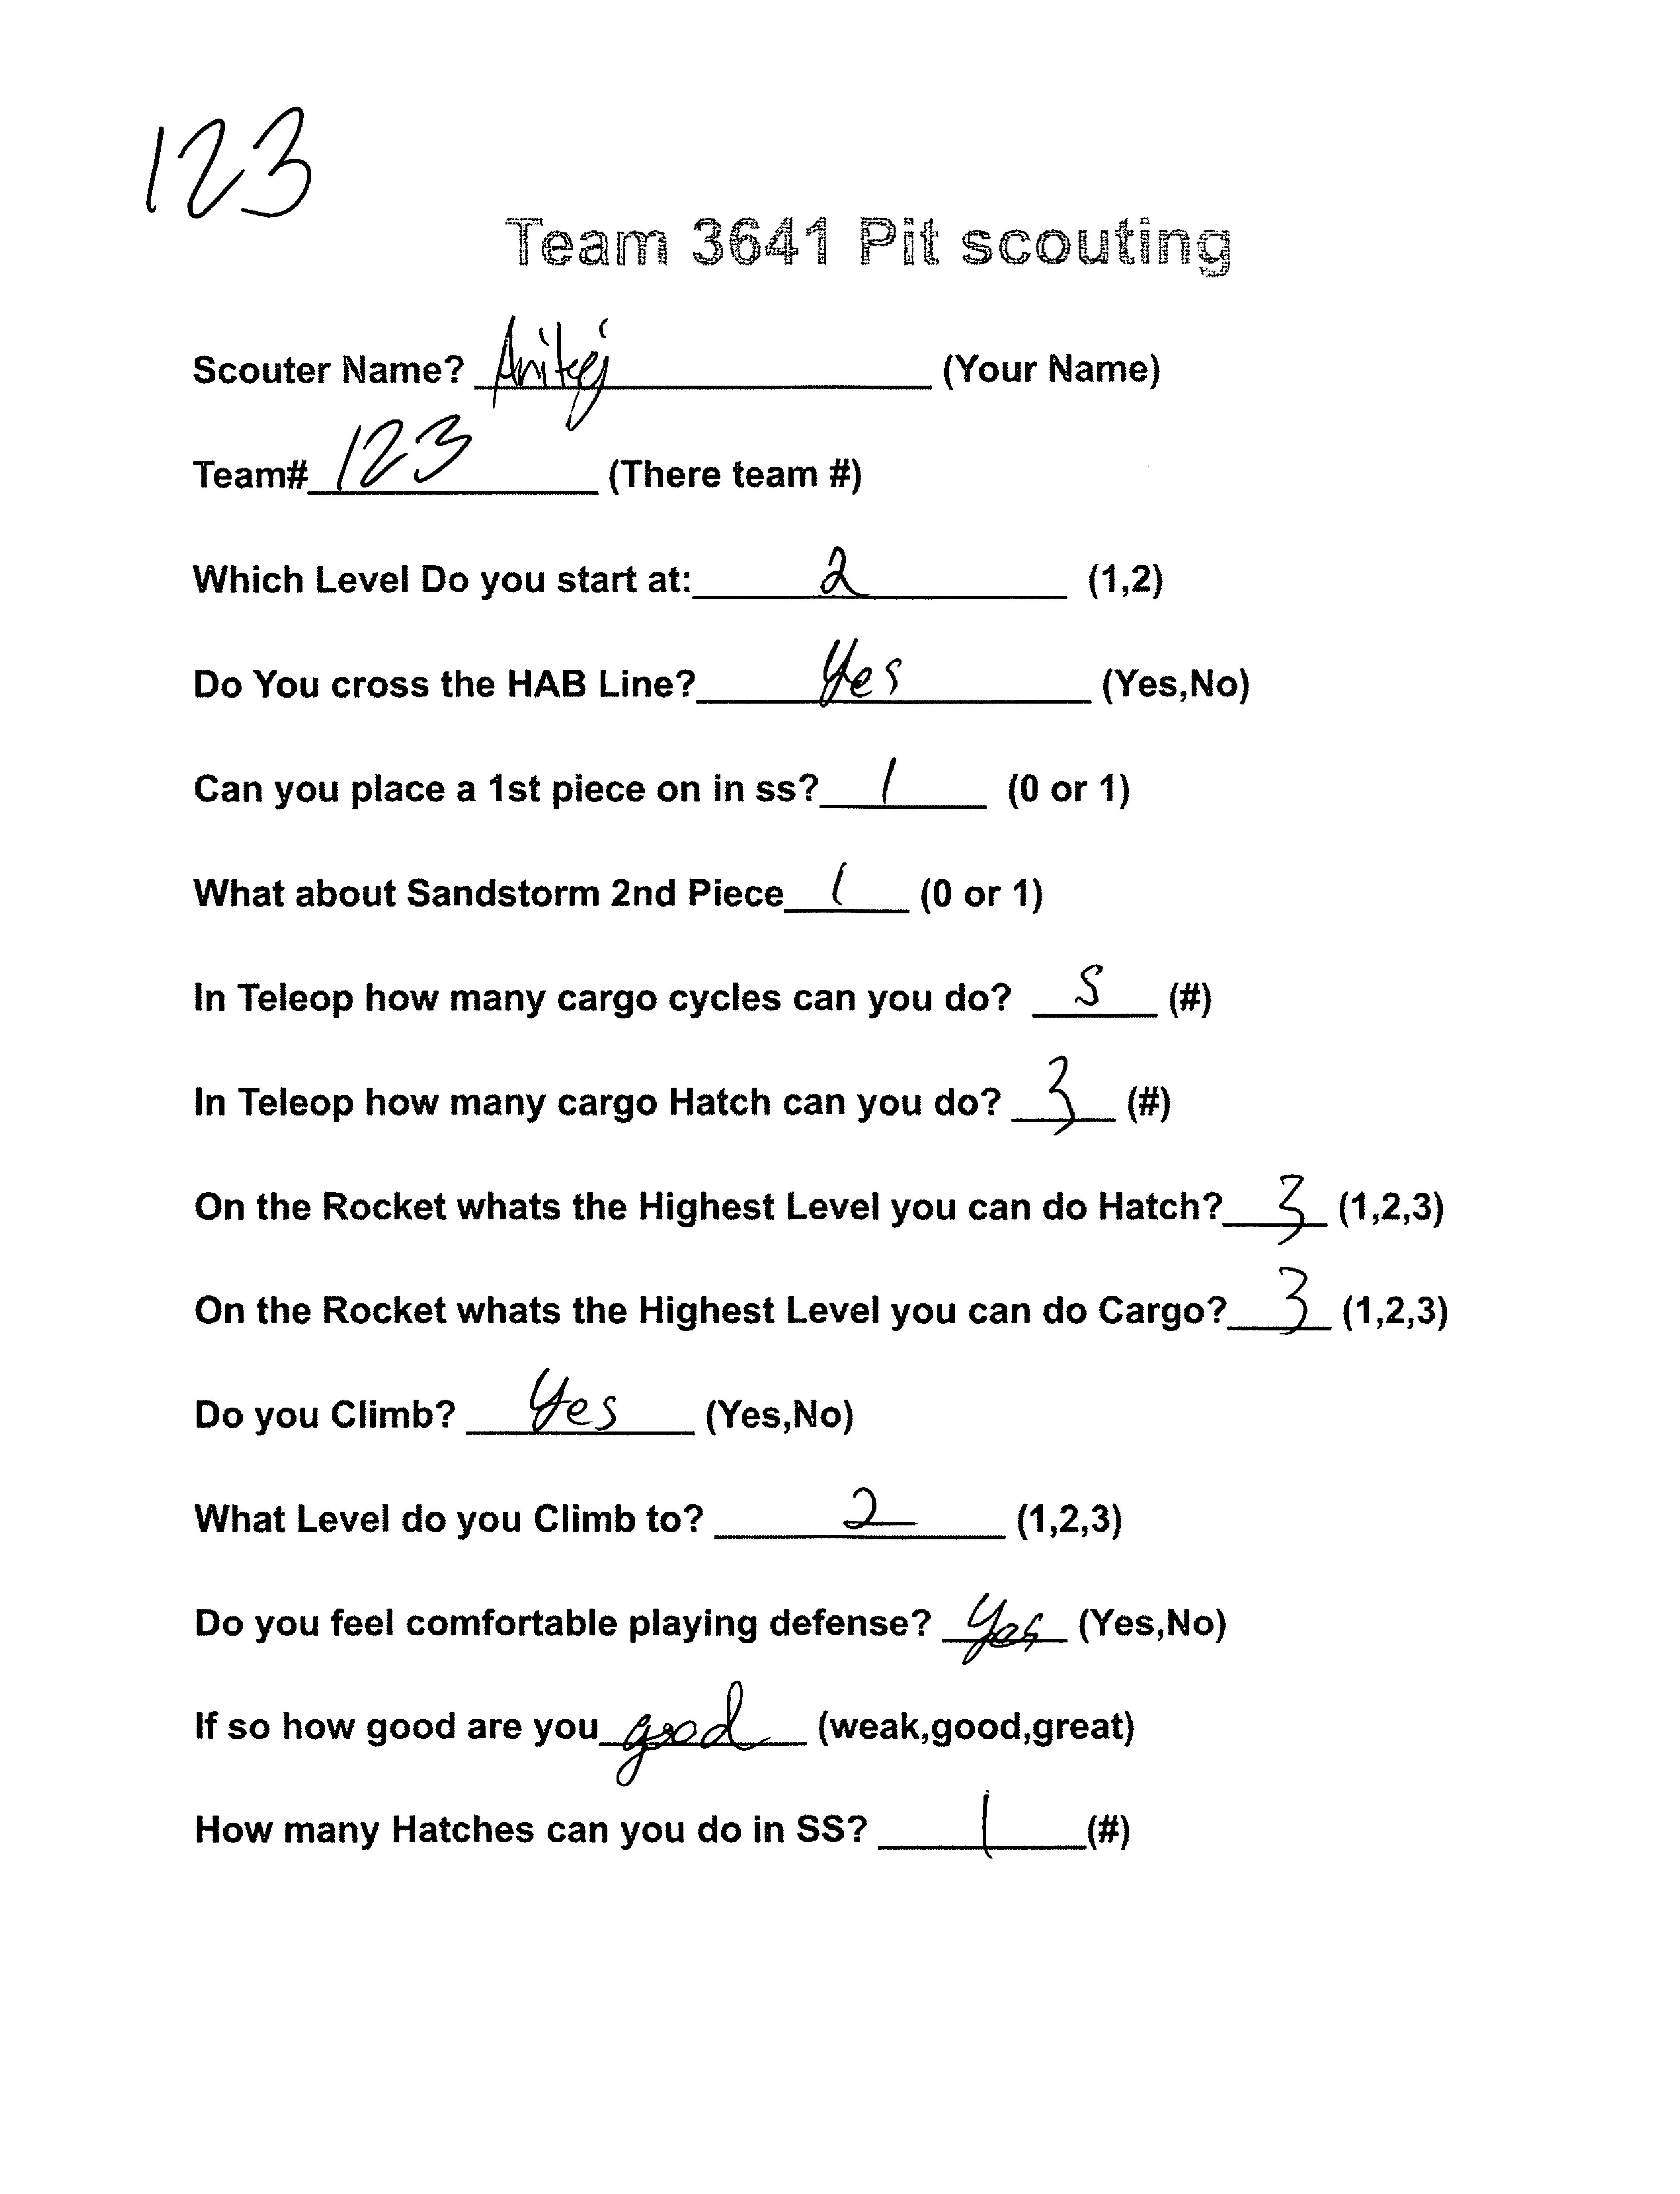 123
Team 3641 Pit scouting
Scouter Name? Anitej (Your Name)
Team# 123 (There team #)
Which Level Do you start at: 2 (1,2)
Do You cross the HAB Line? Yes (Yes,No)
Can you place a 1st piece on in ss? 1 (0 or 1)
What about Sandstorm 2nd Piece 1 (0 or 1)
In Teleop how many cargo cycles can you do? 5 (#)
In Teleop how many cargo Hatch can you do? 3 (#)
On the Rocket whats the Highest Level you can do Hatch? 3 (1,2,3)
On the Rocket whats the Highest Level you can do Cargo? 3 (1,2,3)
Do you Climb? Yes (Yes,No)
What Level do you Climb to? 2 (1,2,3)
Do you feel comfortable playing defense? Yes (Yes,No)
If so how good are you good (weak,good,great)
How many Hatches can you do in SS? 1 (#)